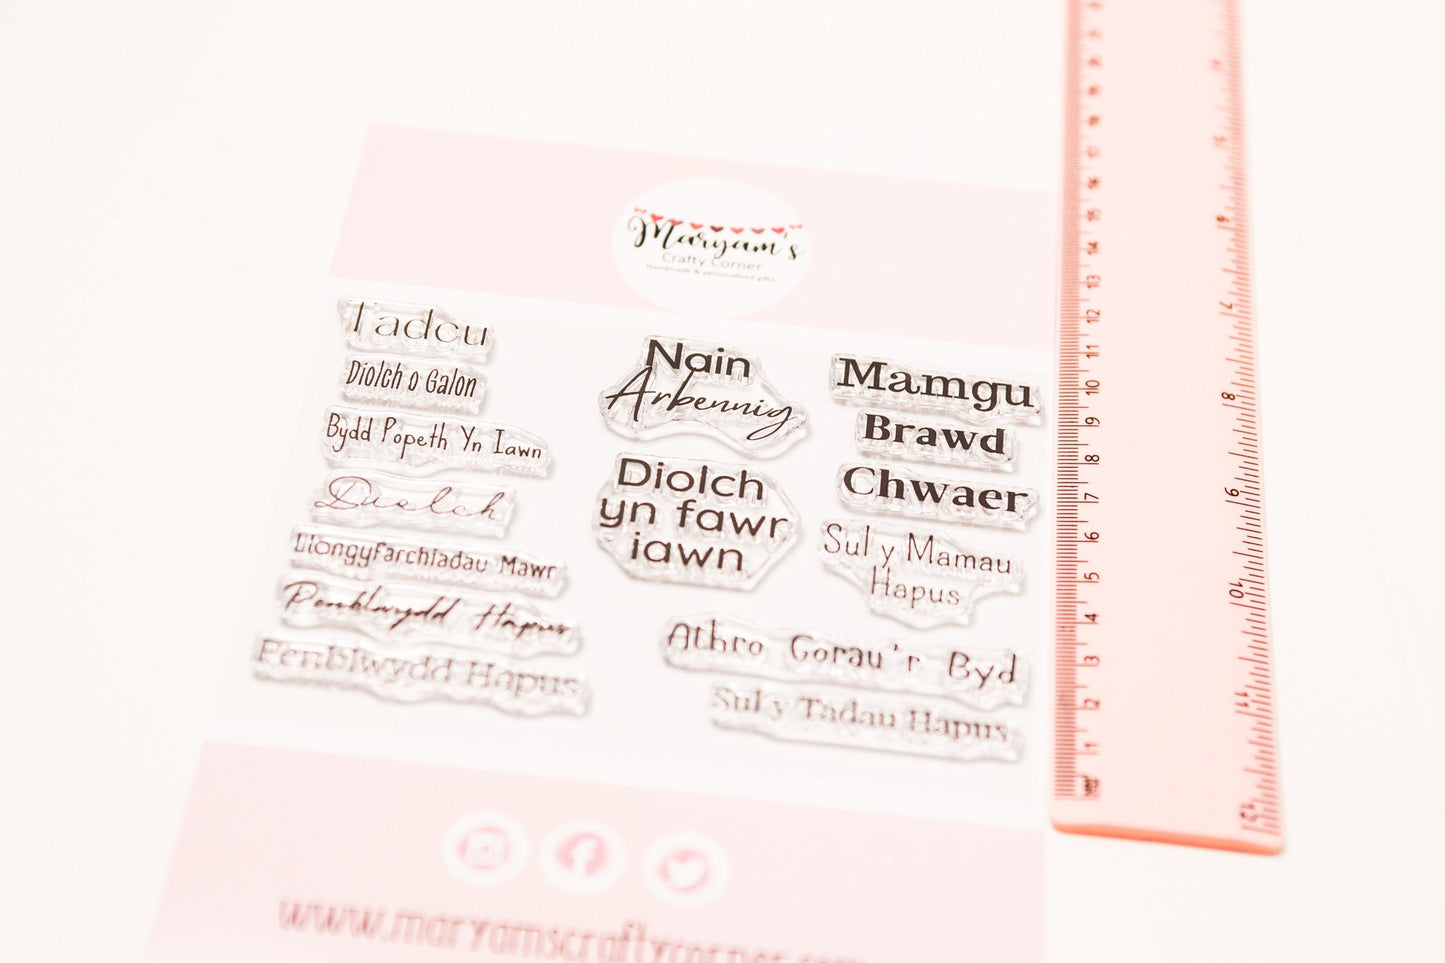 Maryam's
Crafty Corner
Handmade & personalised gifts
Tadcu
Diolch o Galon
Bydd Popeth Yn Iawn
Diolch
Llongyfarchiadau Mawr
Penblwydd Hapus
Penblwydd Hapus
Nain
Arbennig
Diolch
yn fawr
iawn
Mamgu
Brawd
Chwaer
Sul y Mamau
Hapus
Athro Gorau'r Byd
Sul y Tadau Hapus
www.maryamscraftycorner.com
1 2 3 4 5 6 7 8 9 10 11 12 13 14 15
7 8 9 10 11 12